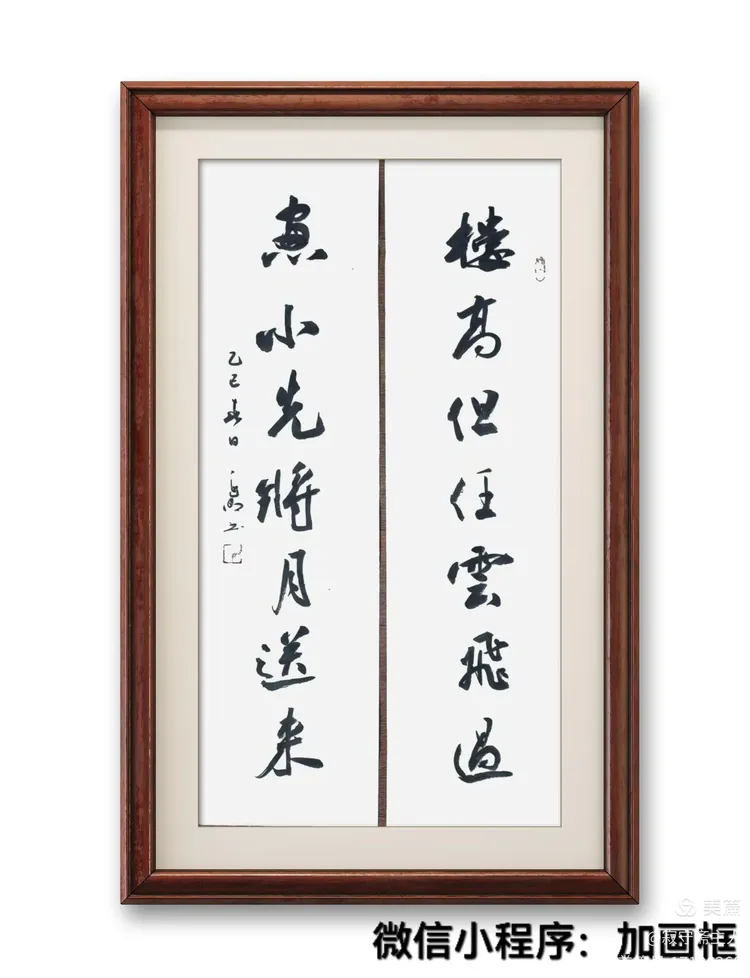 樓高但任雲飛過
窗小先將月送来
乙巳春日
美篇
微信小程序：加画框